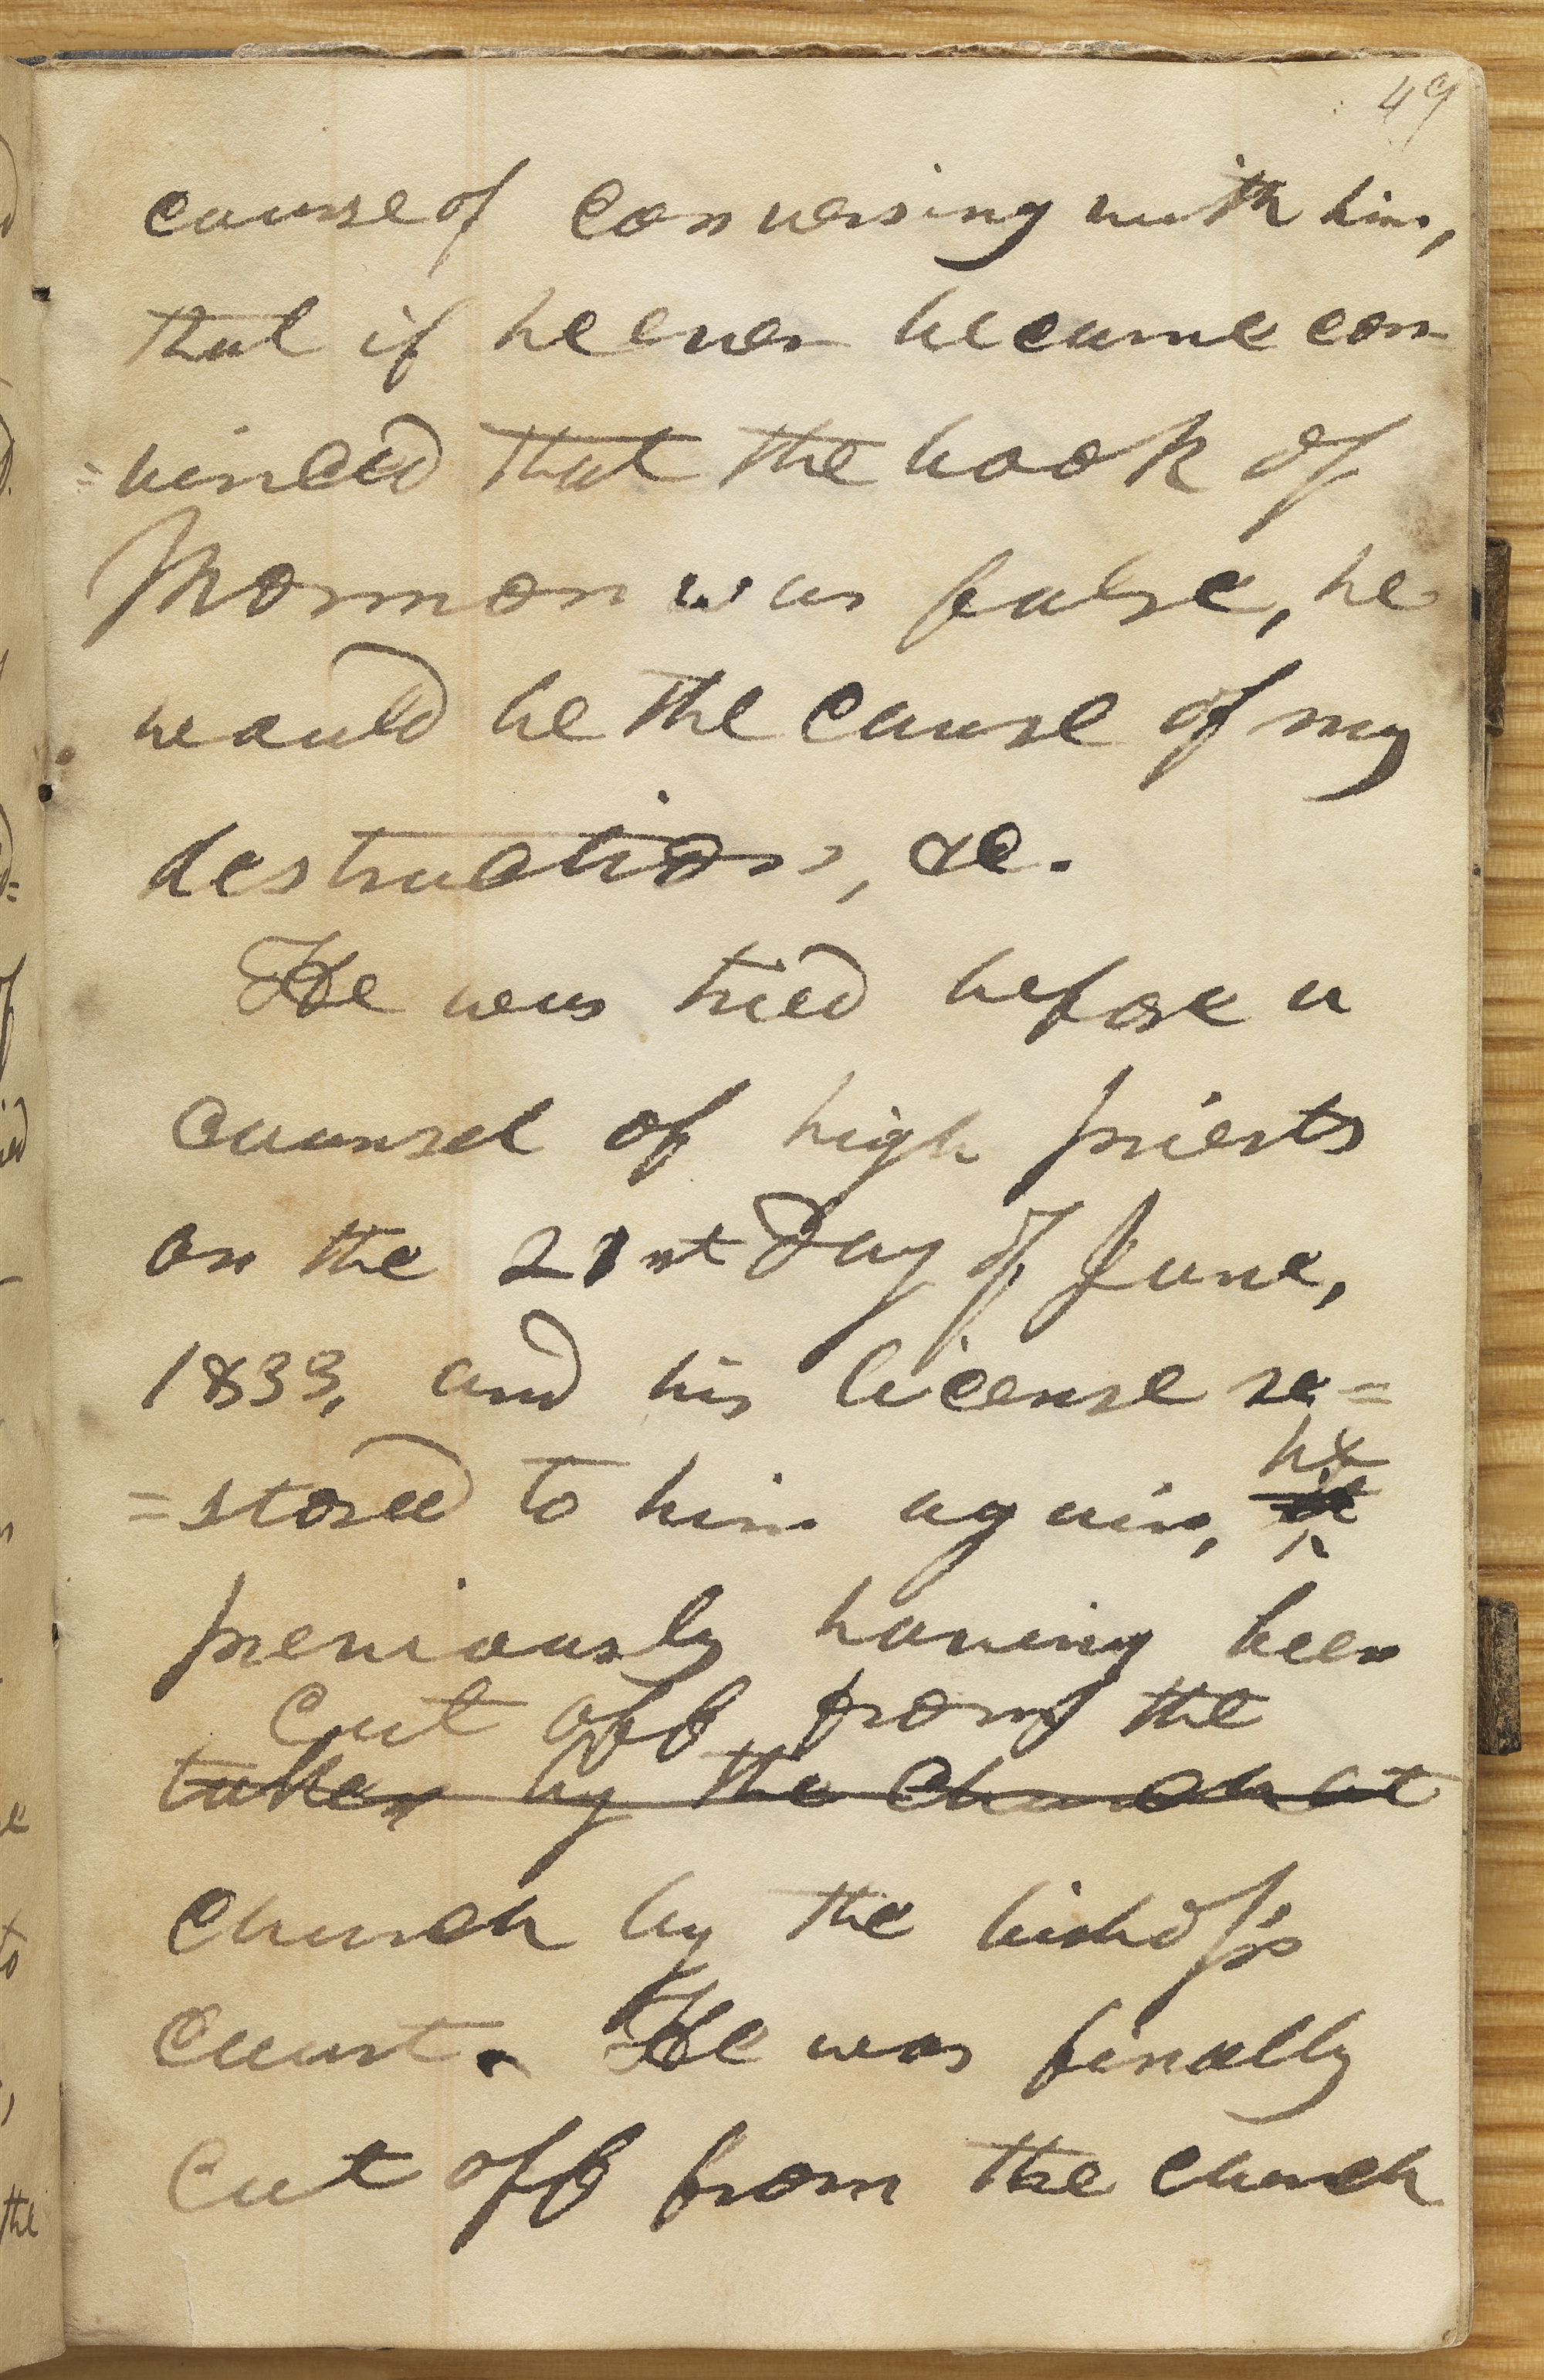 49
course of conversing with him,
that if he ever became con
=vinced that the book of
Mormon was false, he
would be the cause of my
destruction, &c.
He was tried before a
counsel of high priests
on the 21st day of June,
1833, and his license re=
=stored to him again, he
previously having been
cut off from the
taken by the church at
church by the bishop's
court. He was finally
cut off from the church